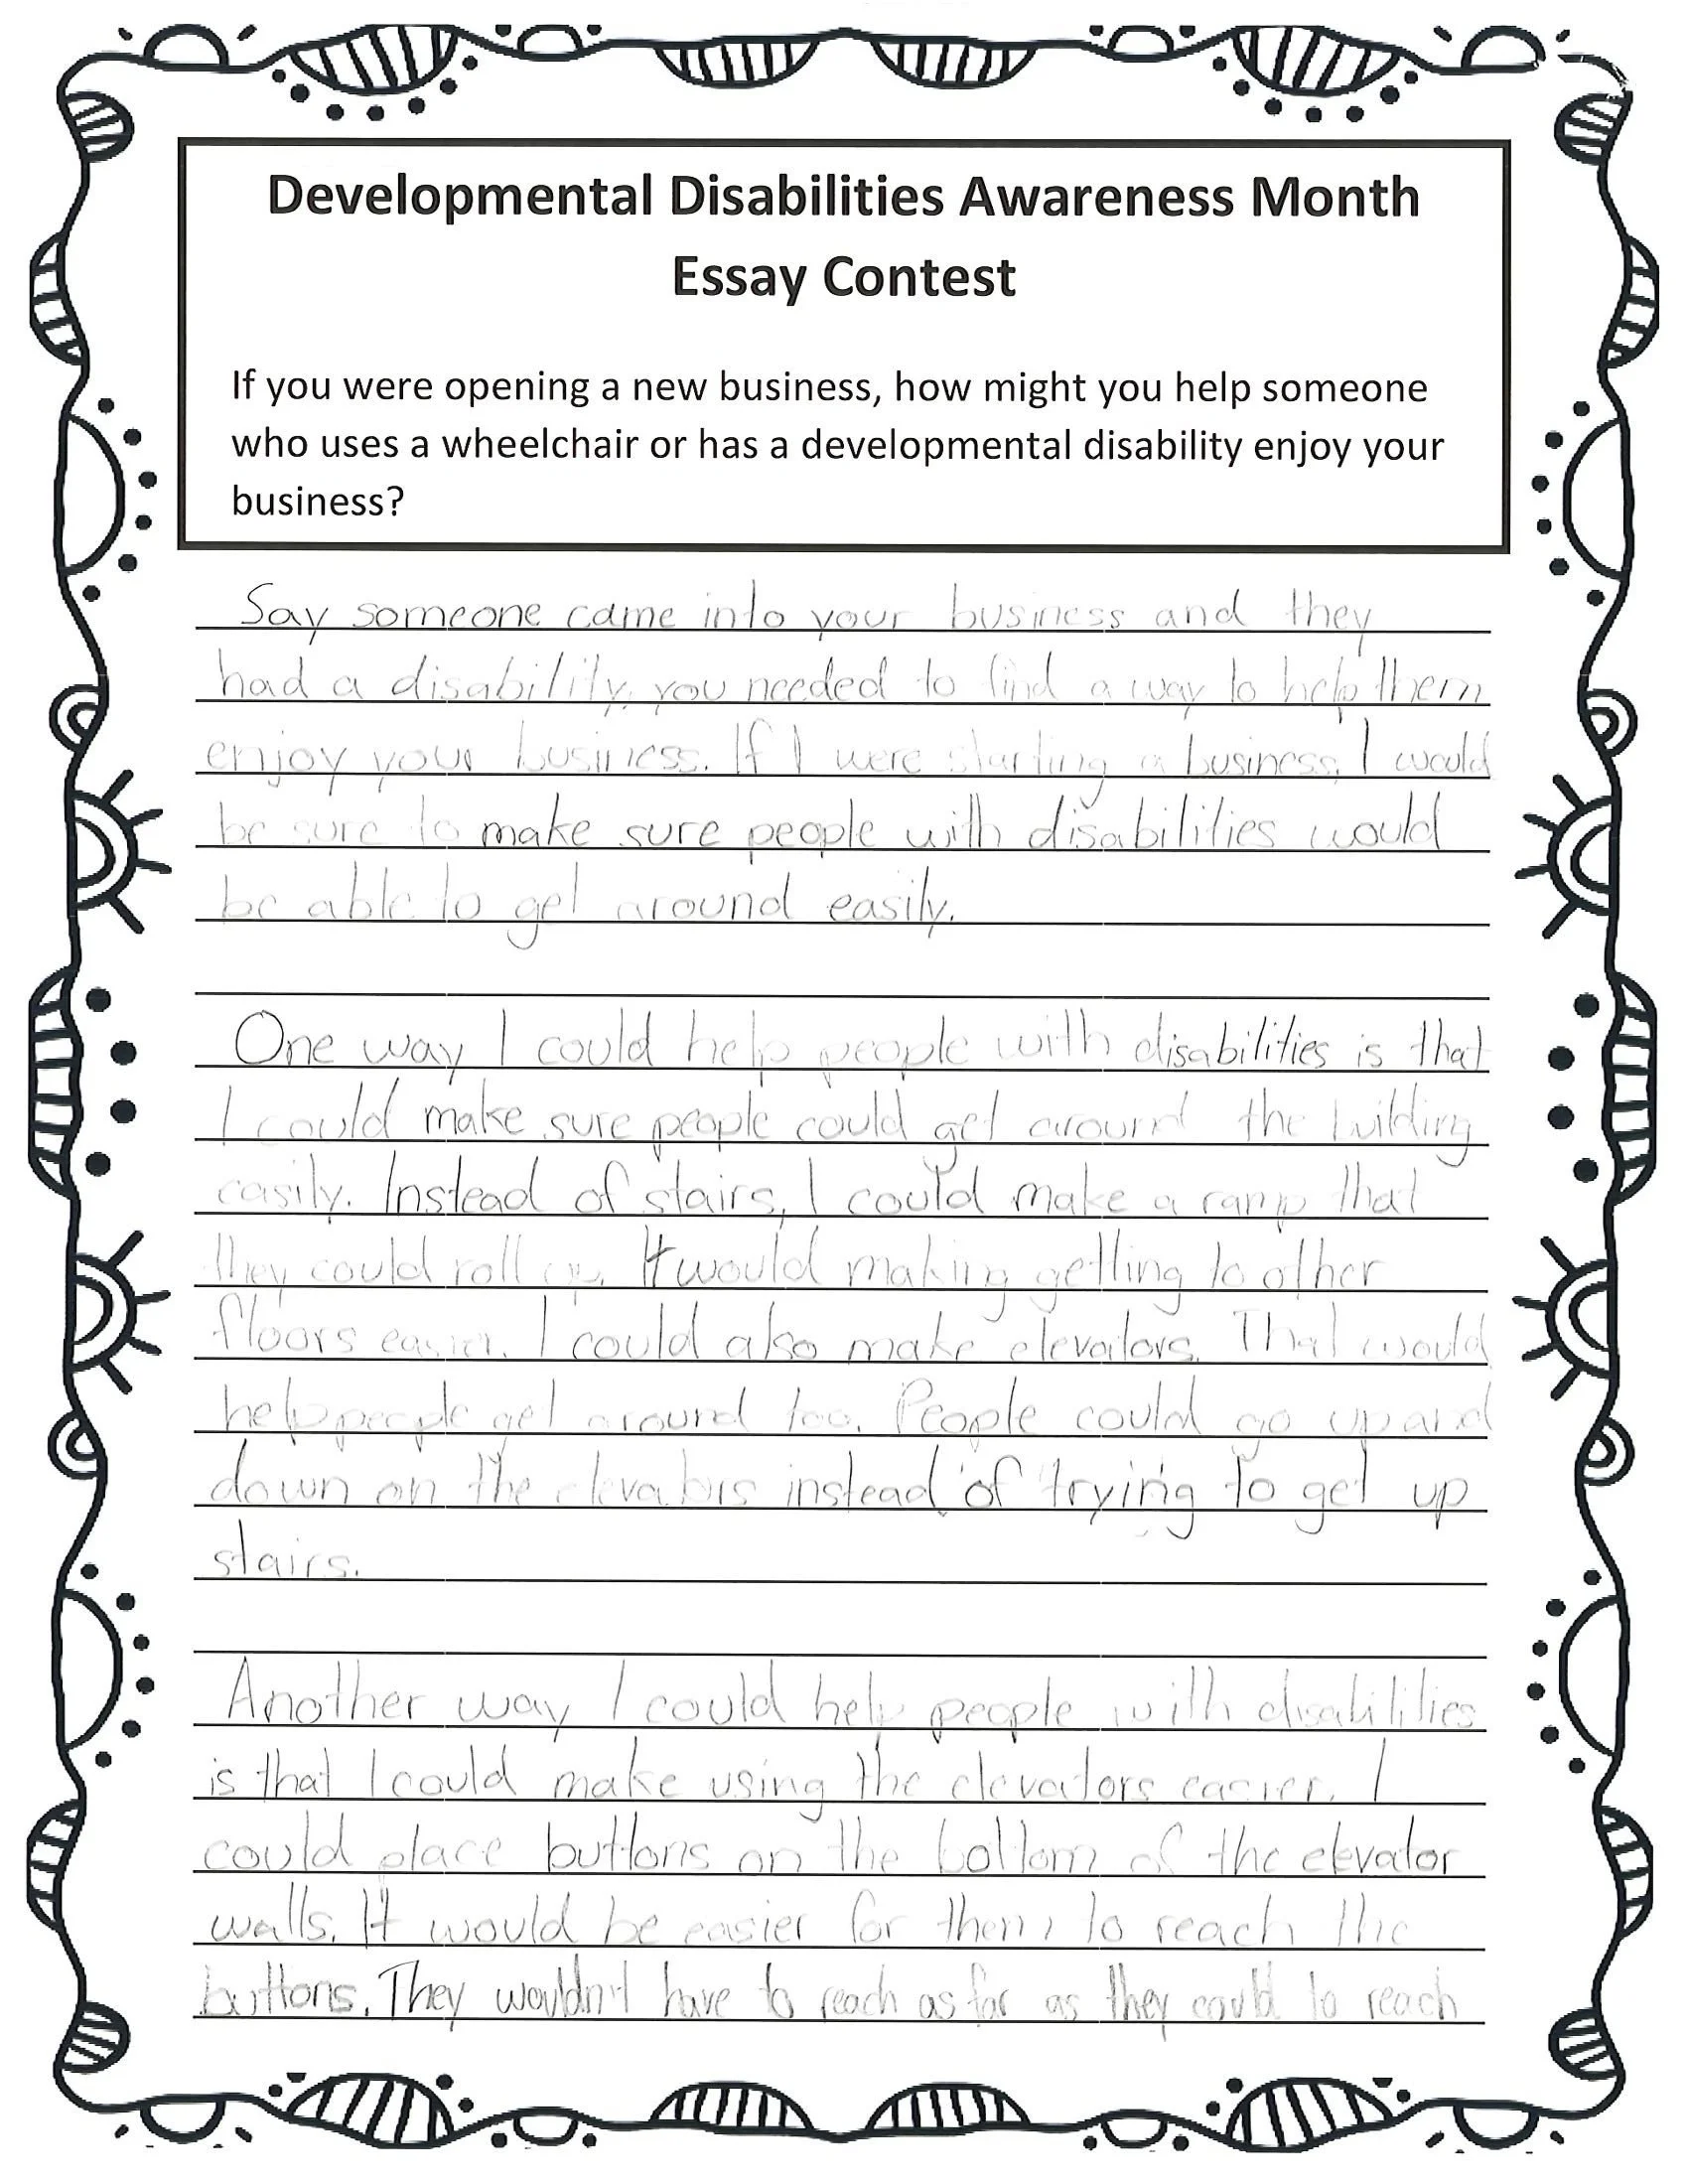 Developmental Disabilities Awareness Month
Essay Contest
If you were opening a new business, how might you help someone
who uses a wheelchair or has a developmental disability enjoy your
business?
Say someone came into your business and they
had a disability, you needed to find a way to help them
enjoy your business. If I were starting a business, I would
be sure to make sure people with disabilities would
be able to get around easily.
One way I could help people with disabilities is that
I could make sure people could get around the building
easily. Instead of stairs, I could make a ramp that
they could roll on. It would making getting to other
floors easier. I could also make elevators. That would
help people get around too. People could go up and
down on the elevators instead of trying to get up
stairs.
Another way I could help people with disabilities
is that I could make using the elevators easier. I
could place buttons on the bottom of the elevator
walls. It would be easier for them to reach the
buttons. They wouldn't have to reach as far as they could to reach